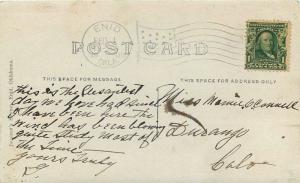 ENID
OKLA.
POST CARD
THIS SPACE FOR MESSAGE
THIS SPACE FOR ADDRESS ONLY
This is the
day we have had since
I have been here the
Wind has been blowing
quite Steady most of
the time
yours Truly
Miss Mamie O'Connell
Durango
Colo